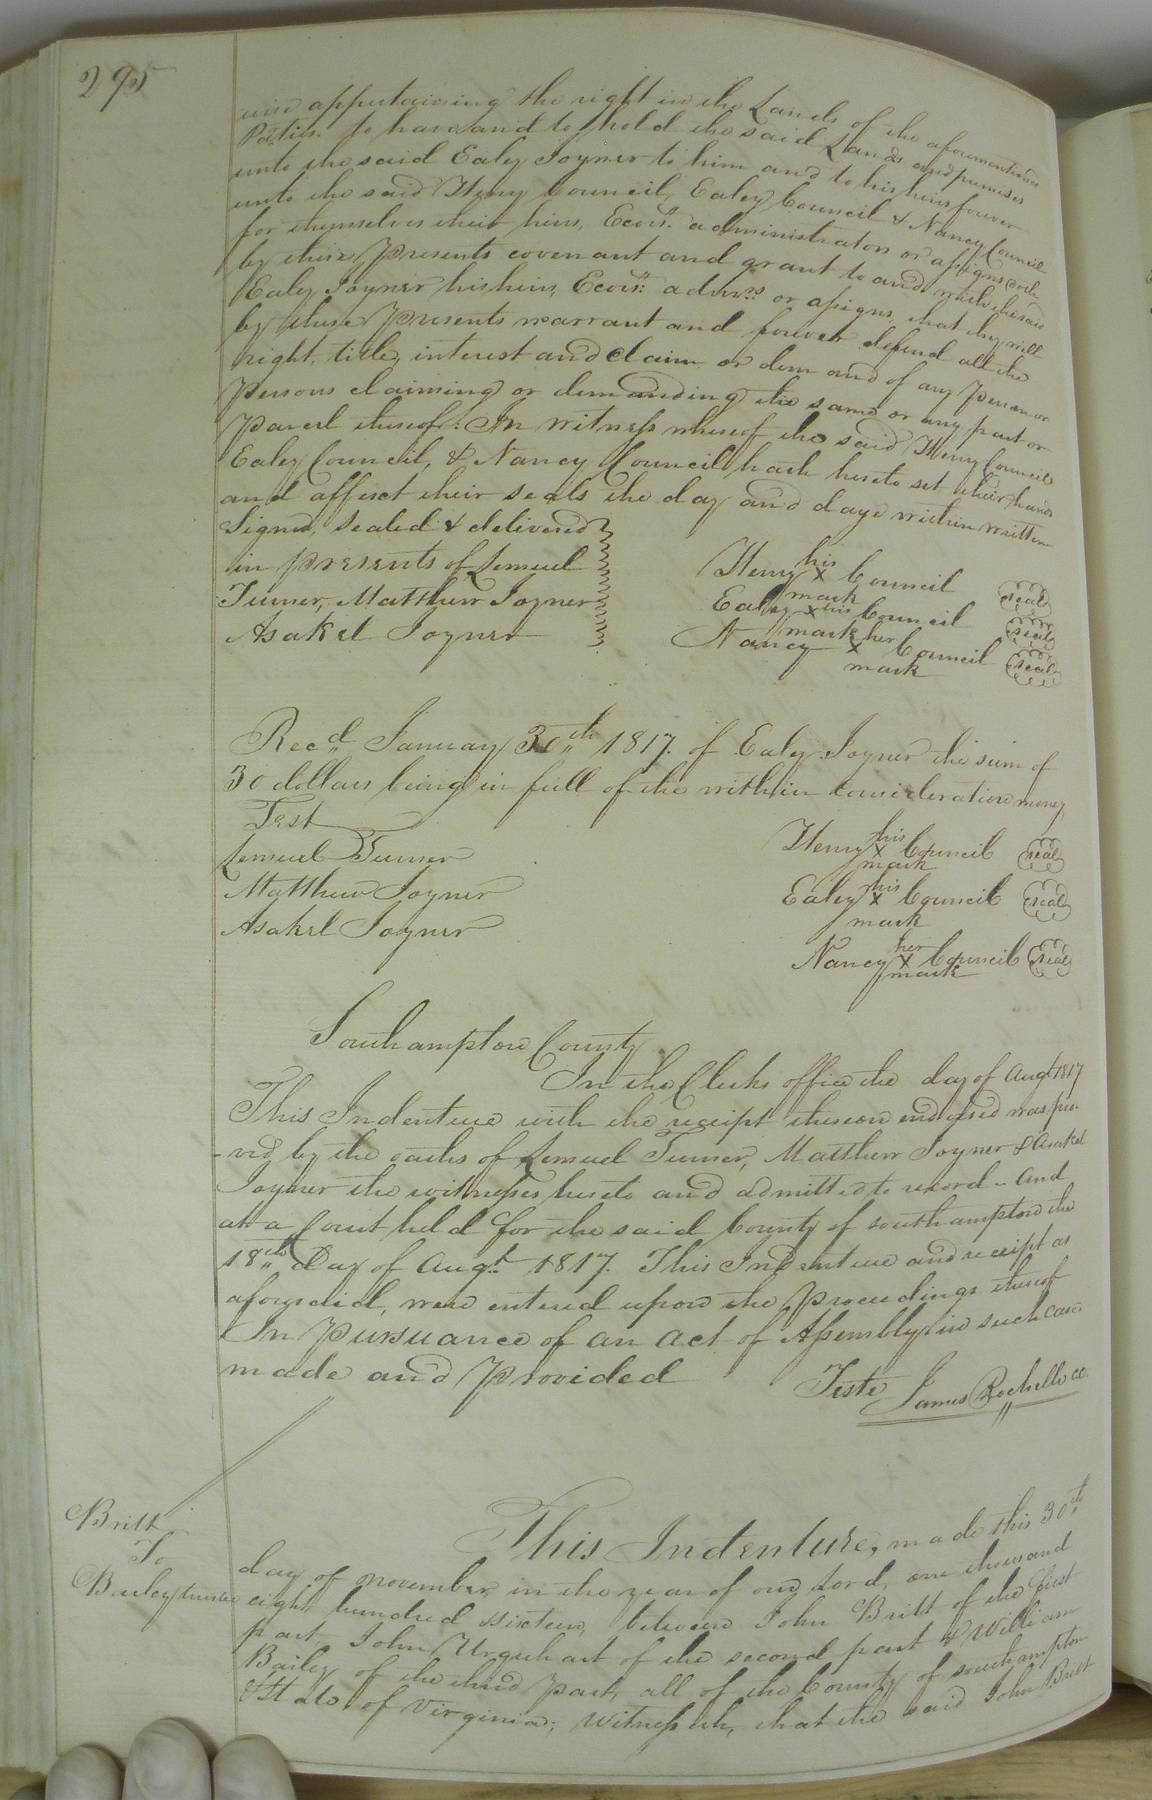 295
wise appertaining the right in the Lands of the aforementioned
Parties. To have and to hold the said Lands and premises
unto the said Ealey Joyner to him and to his heirs forever
unto the said Henry Council, Ealey Council & Nancy Council
for themselves their heirs, Ecors. administrators or assigns doth
by these Presents covenant and grant to and with the said
Ealey Joyner his heirs, Ecors. admrs. or assigns, that they will
by these Presents warrant and forever defend all the
right, title, interest and claim or dem and of any Person or
Persons claiming or demanding the same or any part or
Parcel thereof. In witness whereof the said Henry Council
Ealey Council, & Nancy Council hath hereto set their hands
and affixet their seals the day and daye within written
Signed, Sealed & delivered
in presents of Lemuel
Turner, Matthew Joyner
Asakel Joyner
Henry his X mark Council seal
Ealey X his mark Council seal
Nancy her X mark Council seal
Recd. January 30th 1817. of Ealey Joyner the sum of
30 dollars being in full of the within consideration money
Test
Lemuel Turner
Matthew Joyner
Asakel Joyner
Henry his X mark Council seal
Ealey his X mark Council seal
Nancy her X mark Council seal
Southampton County
In the Clerks office the day of Augt 1817
This Indenture with the receipt thereon endorsed was pro-
-ved by the oaths of Lemuel Turner, Matthew Joyner & Asakel
Joyner the witnesses hereto and admitted to record - And
at a Court held for the said County of Southampton the
18th Day of Augt. 1817. This Indenture and receipt as
aforesaid, were entered upon the Proceedings thereof
In Pursuance of an act of Assembly in such case
made and Provided
Teste James Rochelle cc.
Britt
To
Bailey
This Indenture, made this 30th
day of November, in the year of our Lord, one thousand
eight hundred sixteen, between John Britt of the first
part, John Urquhart of the second part & William
Bailey of the third Part, all of the County of Southampton
& State of Virginia; Witnesseth, that the said John Britt